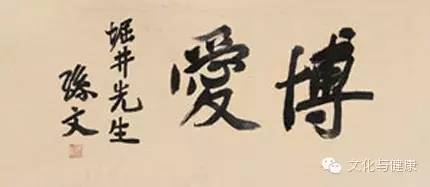 博愛
堀井先生
孫文
文化与健康